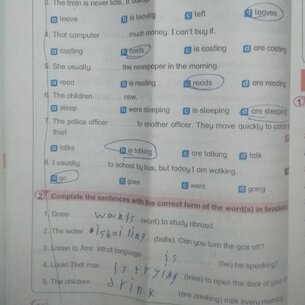 3. The train is never late. It
a leave b is leaving c left d leaves
4. That computer much money. I can't buy it.
a costing b costs c is costing d are costing
5. She usually the newspaper in the morning.
a read b is reading c reads d are reading
6. The children now.
a sleep b were sleeping c is sleeping d are sleeping
7. The police officer to another officer. They move quickly to catch
thief.
a talks b is talking c are talking d talk
8. I usually to school by bus, but today I am walking.
a go b goes c went d going
2 Complete the sentences with the correct form of the word(s) in brackets
1. Dooa wants (want) to study abroad.
2. The water is boiling (boils). Can you turn the gas off?
3. Listen to Amr. What language is (be) he speaking?
4. Look! That man is trying (tries) to open the door of your
5. The children drink (are drinking) milk every morning.
1